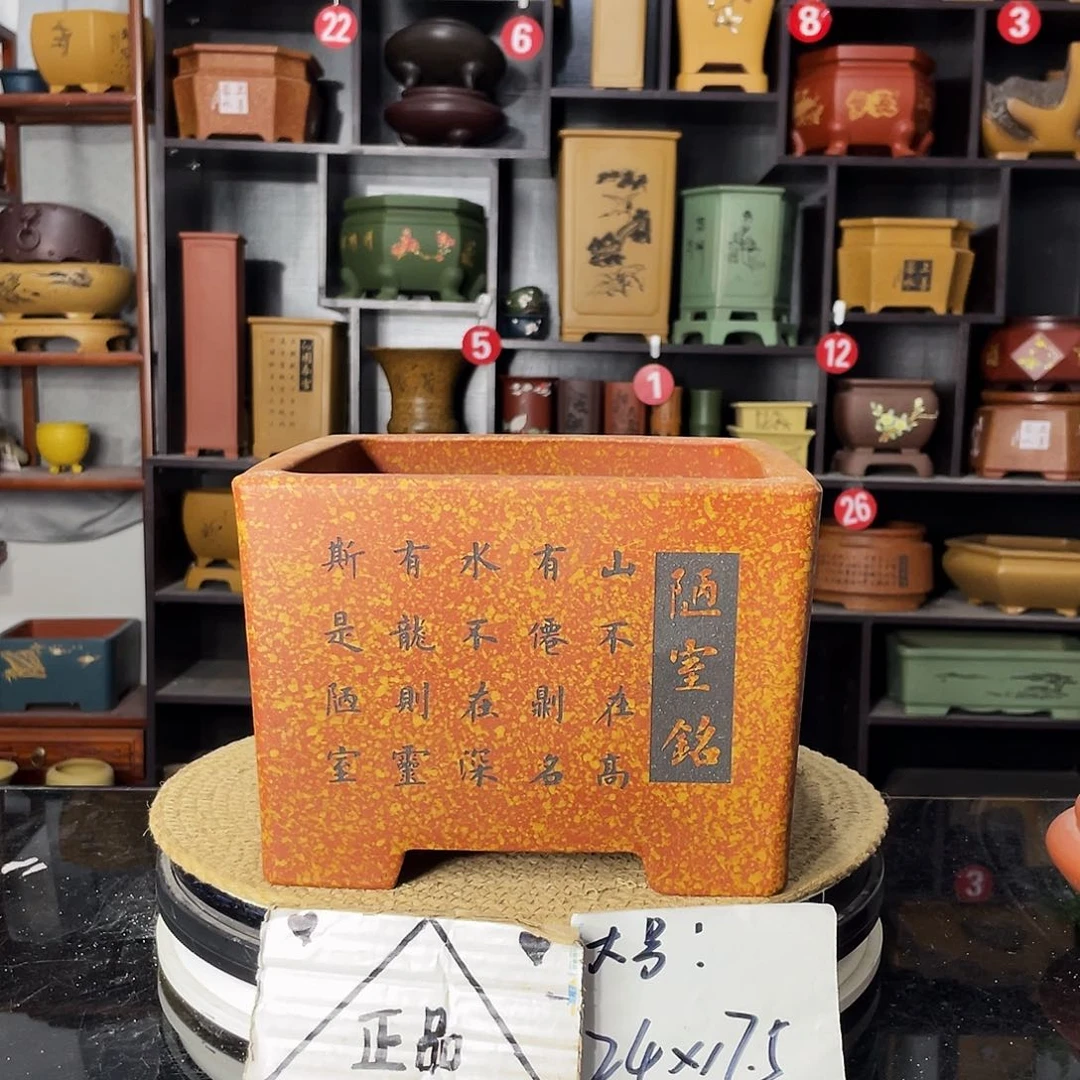 陋室銘
山不在高
有僊則名
水不在深
有龍則靈
斯是陋室
正品
大号：
24×17.5
22
6
8
3
5
1
12
26
3